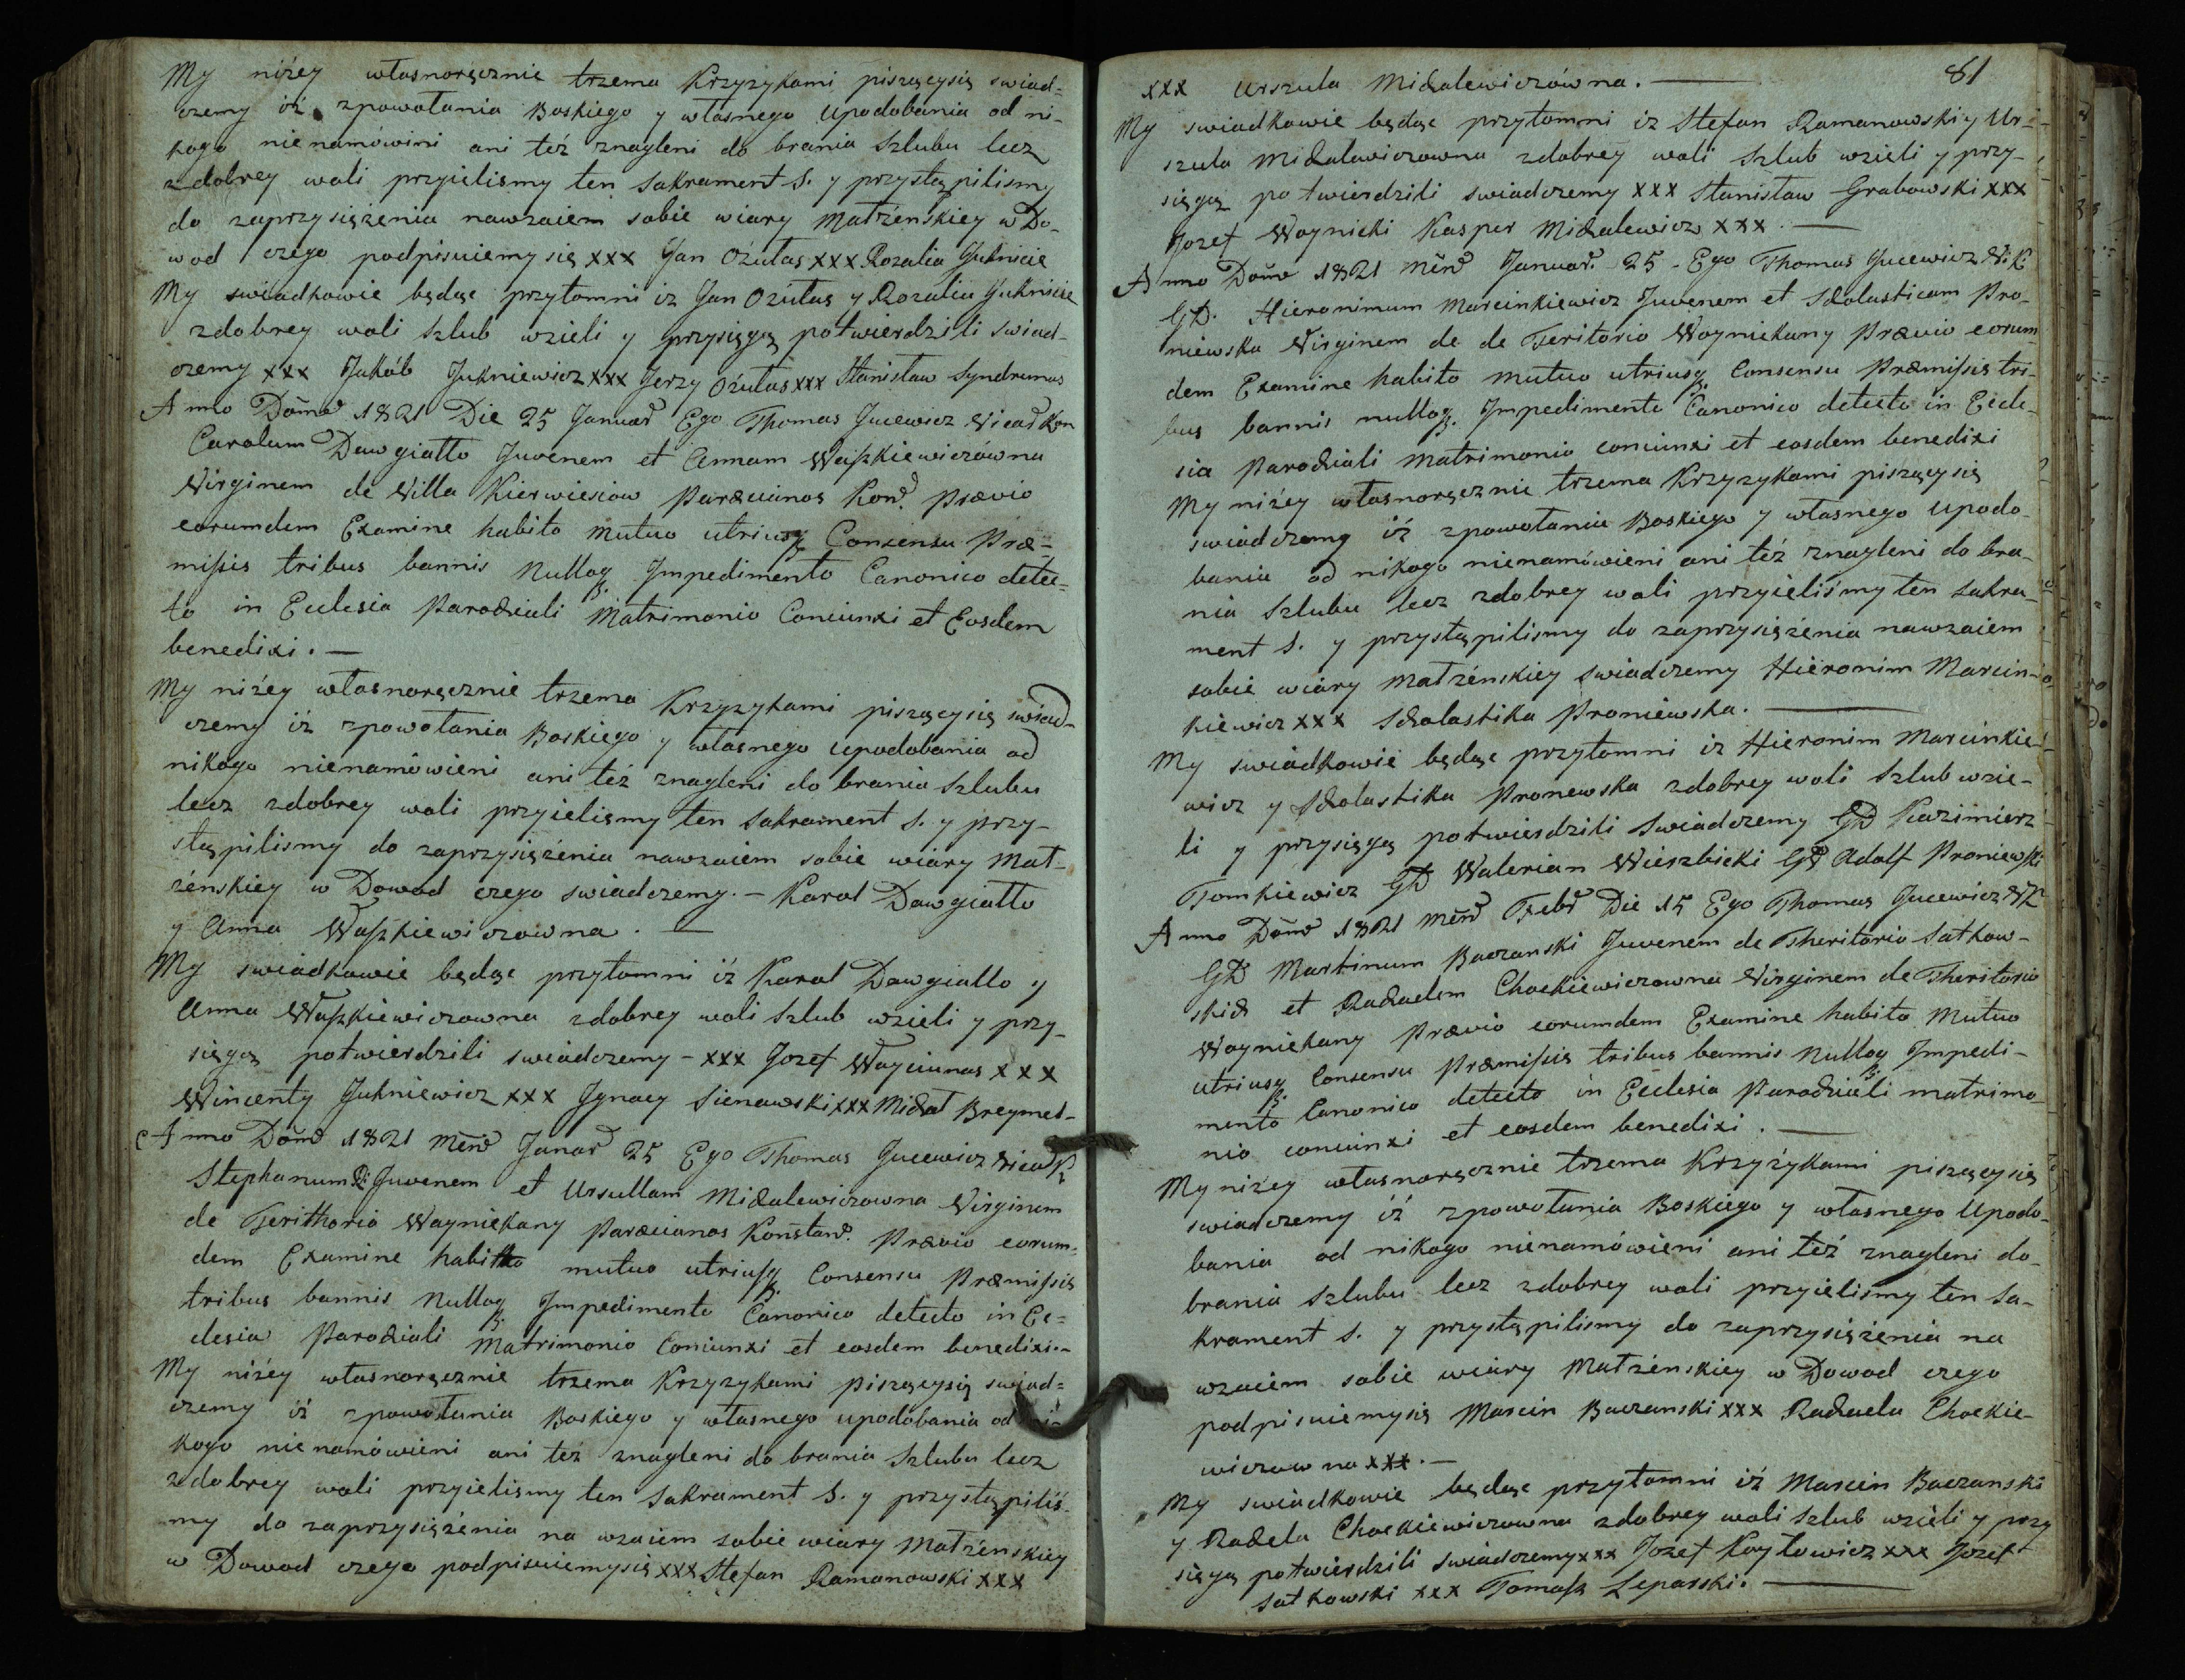 My niżey własnoręcznie trzema Krzyzykami piszącysię swiad=
czemy iż zpowołania Boskiego y własnego upodobania od ni-
kogo nienamówini ani też znagleni do brania Szlubu lecz
zdobrey woli przyielismy ten Sakrament S. y przystąpilismy
do zaprzysiężenia nawzaiem sobie wiary Małżenskiey w Do-
wod czego podpisuiemysię xxx Jan Ożutas xxx Rozalia Juknicie
My swiadkowie będąc przytomni iz Jan Ozutas y Rozalia Juknicie
zdobrey woli Szlub wzieli y przysięgą potwierdzili Swiad-
czemy xxx Jakób Jukniewicz xxx Jerzy Ożutas xxx Stanisław Syndrunas
Anno Domē 1821 Die 25 Januar Ego Thomas Jucewicz Vicar Kon
Carolum Dawgiałło Juvenem et Annam Waszkiewiczówna
Virginem de Villa Kierwiesiow Paræcianos Kon. Prævio
eorumdem Examine habito mutuo utriusq Consensu Præ-
missis tribus bannis Nulloq Impedimento Canonico detec-
to in Eclesia Parochiali Matrimonio Coniunxi et Eosdem
benedixi. —
My niżey własnoręcznie trzema Krzyzykami piszącysię swiad-
czemy iż zpowołania Boskiego y własnego upodobania od
nikogo nienamówieni ani też znagleni do brania Szlubu
lecz zdobrey woli przyielismy ten Sakrament S. y przy-
stąpilismy do zaprzysiężenia nawzaiem sobie wiary Mał-
żenskiey w Dowod czego swiadczemy. — Karol Dawgiałło
y Anna Waszkiewiczowna. —
My swiadkowie będąc przytomni iż Karol Dawgiallo y
Anna Waszkiewiczowna zdobrey woli Szlub wzieli y przy-
sięgą potwierdzili swiadczemy - xxx Jozef Wayciunas xxx
Wincenty Jukniewicz xxx Jgnacy Sienawski xxx Michał Breymel-
Anno Domē 1821 Mēn Janar 25 Ego Thomas Jucewicz Vicar K
Stephanum R: Juvenem et Ursullam Michalewiczowna Virginem
de Terithorio Wayniekany Paræcianos Konstan. Prævio eorum=
dem Examine habitto mutuo utriusq Consensu Præmissis
tribus bannis Nulloq Impedimento Canonico detecto in Ec=
clesia Parochiali Matrimonio Coniunxi et eosdem benedixi.-
My niżey własnoręcznie trzema Krzyzykami piszącysię swiad=
czemy iż zpowołania Boskiego y własnego upodobania od ni-
kogo nienamówieni ani też znagleni do brania Szlubu lecz
zdobrey woli przyielismy ten Sakrament S. y przystąpiliś-
my do zaprzysiężenia na wzaiem sobie wiary Małżenskiey
w Dowod czego podpisuiemysię xxx Stefan Ramanowski xxx
81
xxx Urszula Michalewiczówna. —
My swiadkowie będąc przytomni iz Stefan Ramanowski y Ur-
szula Michalewiczowna zdobrey woli Szlub wzieli y przy-
sięgą potwierdzili swiadczemy xxx Stanisław Grabowski xxx
Jozef Woynicki Kasper Michalewicz xxx. —
Anno Domē 1821 Mēn Januar. 25 - Ego Thomas Jucewicz V. K
GD. Hieronimum Marcinkiewicz Juvenem et Scholasticam Pro-
niewska Virginem de de Teritorio Woyniekany Prævio eorum
dem Examine habito mutuo utriusq Consensu Præmissis tri-
bus bannis nulloq Impedimento Canonico detecto in Ecle-
sia Parochiali Matrimonio coniunxi et eosdem benedixi
My niżey własnoręcznie trzema Krzyzykami piszącysię
swiadczemy iż zpowołania Boskiego y własnego upodo-
bania od nikogo nienamówieni ani też znagleni do bra-
nia Szlubu lecz zdobrey woli przyieliśmy ten Sakra-
ment S. y przystąpilismy do zaprzysiężenia nawzaiem
sobie wiary Małżenskiey swiadczemy Hieronim Marcin-
kiewicz xxx Scholastika Proniewska. —
My swiadkowie będąc przytomni iz Hieronim Marcinkie-
wicz y Scholastika Pronewska zdobrey woli Szlub wzie-
li y przysięgą potwierdzili Swiadczemy GD Kazimierz
Tomkiewicz GD Walerian Wierzbicki GD Adolf Proniewski
Anno Domē 1821 Mēn Febr Die 15 Ego Thomas Jucewicz VK
GD Martinum Baczanski Juvenem de Theritorio Satkow-
skich et Rachaelem Chockiewiczowna Virginem de Theritorio
Woyniekany Prævio eorumdem Examine habito Mutuo
utriusq Consensu Præmissis tribus bannis Nulloq Impedi-
mento Canonico detecto in Eclesia Parochiali matrimo-
nio coniunxi et eosdem benedixi. —
My niżey własnoręcznie trzema Krzyżykami piszącysię
swiadczemy iż zpowołania Boskiego y własnego Upodo-
bania od nikogo nienamówieni ani też znagleni do-
brania Szlubu lecz zdobrey woli przyielismy ten Sa-
krament S. y przystąpilismy do zaprzysiężenia na
wzaiem sobie wiary Małżenskiey w Dowod czego
podpisuiemysię Marcin Baczanski xxx Rachaela Chockie-
wiczowna xxx. —
My swiadkowie będąc przytomni iż Marcin Baczanski
y Rachela Chockiewiczowna zdobrey woli Szlub wzieli y przy
sięgą potwierdzili swiadczemy xxx Jozef Koytowicz xxx Jozef
Satkowski xxx Tomasz Leparski. —